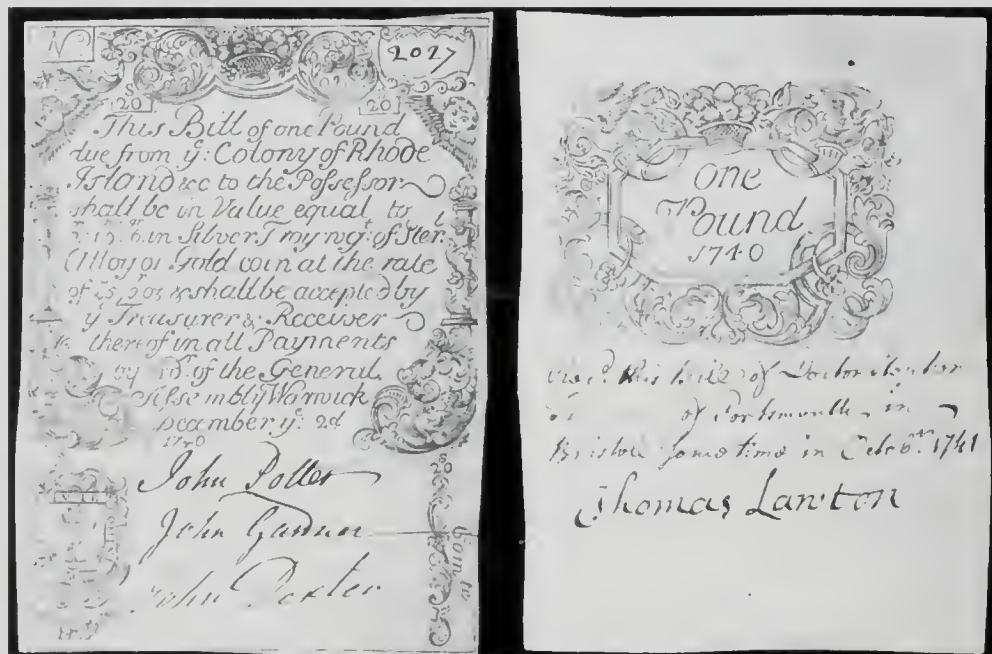 No
2027
S
20
S
20
This Bill of one Pound
due from yͤ: Colony of Rhode
Island &c to the Possessor
shall be in Value equal to
in Silver Troy wgͭ: of Ster.ˡ
Alloy or Gold coin at the rate
& shall be accepted by
yͤ Treasurer & Receiver
thereof in all Payments
by of the General
Assembly Warwick
December yͤ: 2d
1740
John Potter
John Gardner
John Dexter
S
20
Coin to
One
Pound
1740
this bill of Doctor
of Portsmouth in
Bristoll some time in 1741
Thomas Lawton